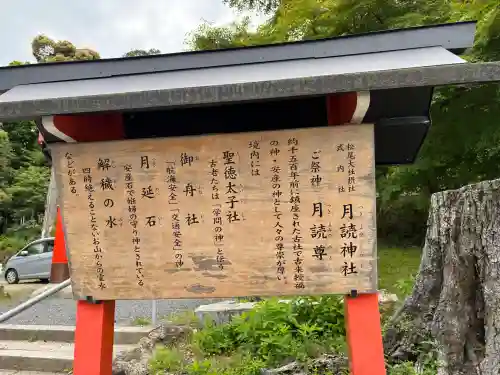 松尾大社摂社
式内社
月読神社
ご祭神 月読尊
約千五百年前に鎮座された古社で古来病
の神・安産の神として人々の尊崇が厚い
境内に
聖徳太子社
古老たちは「学問の神」とほうが
御舟社
「航海安全」「交通安全」の神
月延石
安産石で姫婦の守り神とされている
解穢の水
四時絶えることなくお山からの霊水
などがある。